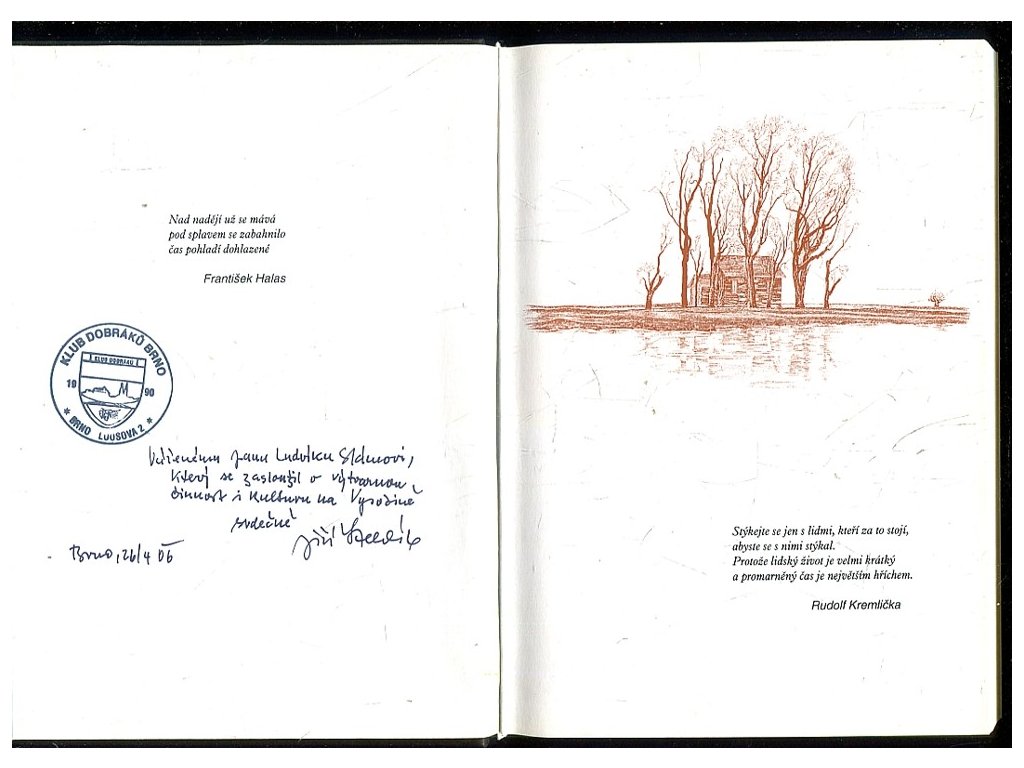 Nad nadějí už se mává
pod splavem se zabahnilo
čas pohladí dohlazené
František Halas
KLUB DOBRÁKŮ BRNO
KLUB DOBRÁKŮ
19 90
* BRNO LOOSOVA 2 *
Váženému panu Ludvíku
který se zasloužil o výtvarnou
činnost i kulturu na Vysočině
srdečně
Jiří
Brno, 26/4 06
Stýkejte se jen s lidmi, kteří za to stojí,
abyste se s nimi stýkal.
Protože lidský život je velmi krátký
a promarněný čas je největším hříchem.
Rudolf Kremlička